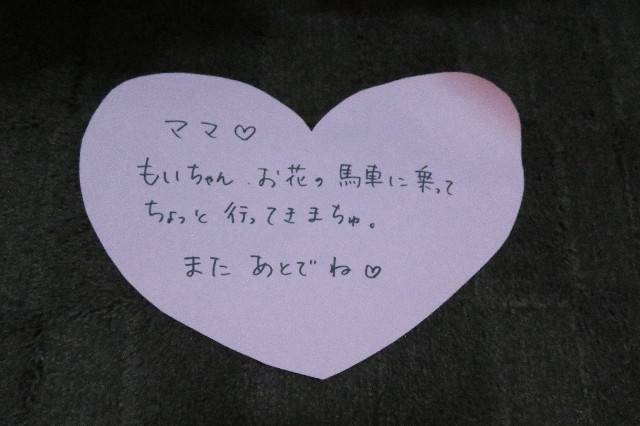 ママ♡
もいちゃん、お花の馬車に乗って
ちょっと行ってきまちゅ。
またあとでね♡